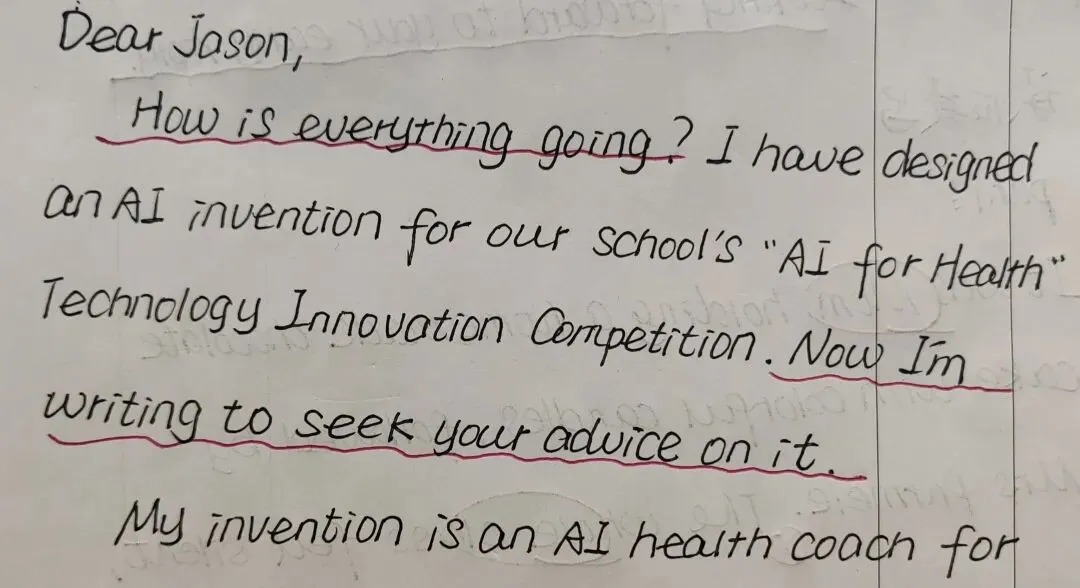 Dear Jason,
How is everything going? I have designed
an AI invention for our school's "AI for Health"
Technology Innovation Competition. Now I'm
writing to seek your advice on it.
My invention is an AI health coach for